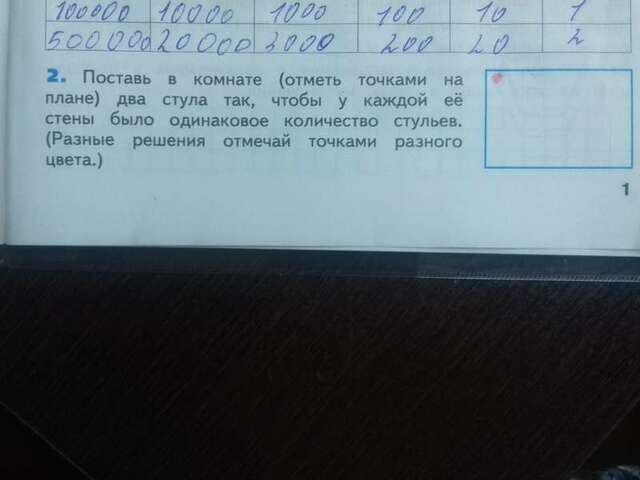 100000 10000 1000 100 10 1
500000 20000 3000 200 20 2
2. Поставь в комнате (отметь точками на
плане) два стула так, чтобы у каждой её
стены было одинаковое количество стульев.
(Разные решения отмечай точками разного
цвета.)
1